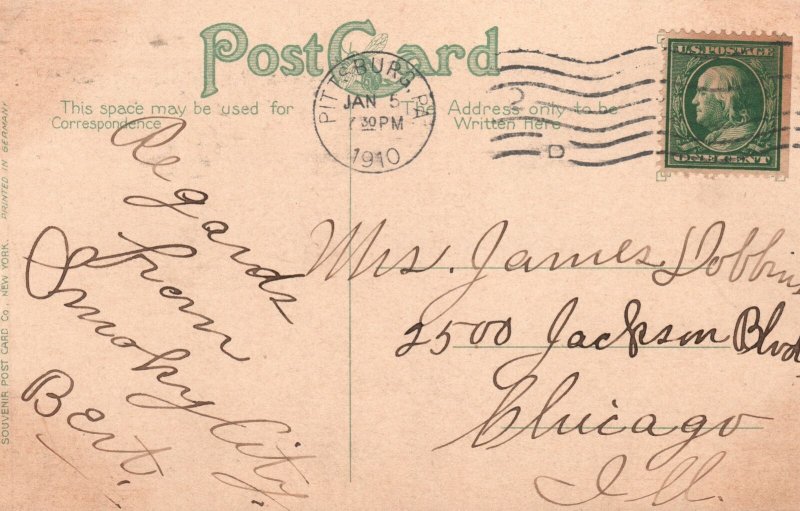 Post Card
This space may be used for
Correspondence
The Address only to be
Written Here
PITTSBURG, PA.
JAN 5
7 30 PM
1910
2
D
U.S. POSTAGE
ONE CENT
Regards
from
Smoky City.
Bert.
Mrs. James Dobbins
2500 Jackson Blvd
Chicago
Ill.
SOUVENIR POST CARD CO., NEW YORK. PRINTED IN GERMANY